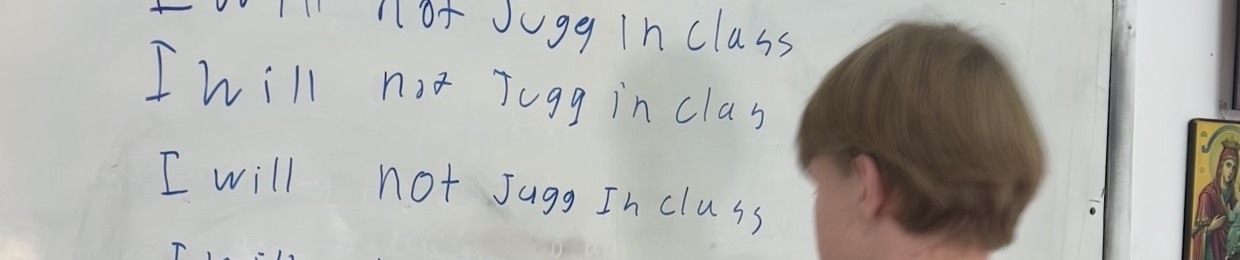 I will not Jugg in class
I will not Jugg in clas
I will not Jugg In class
I will